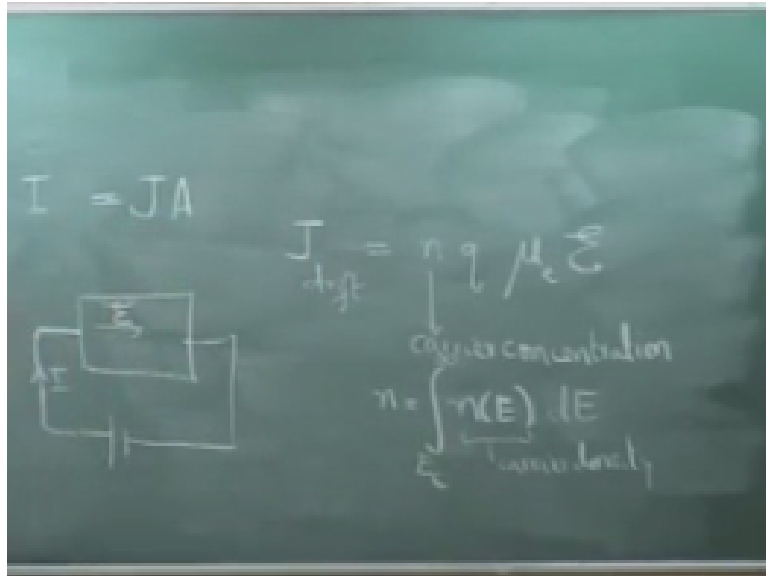 I = JA
J drift = n q μe ℰ
E
I
carrier concentration
n = ∫Ec n(E) dE
carrier density